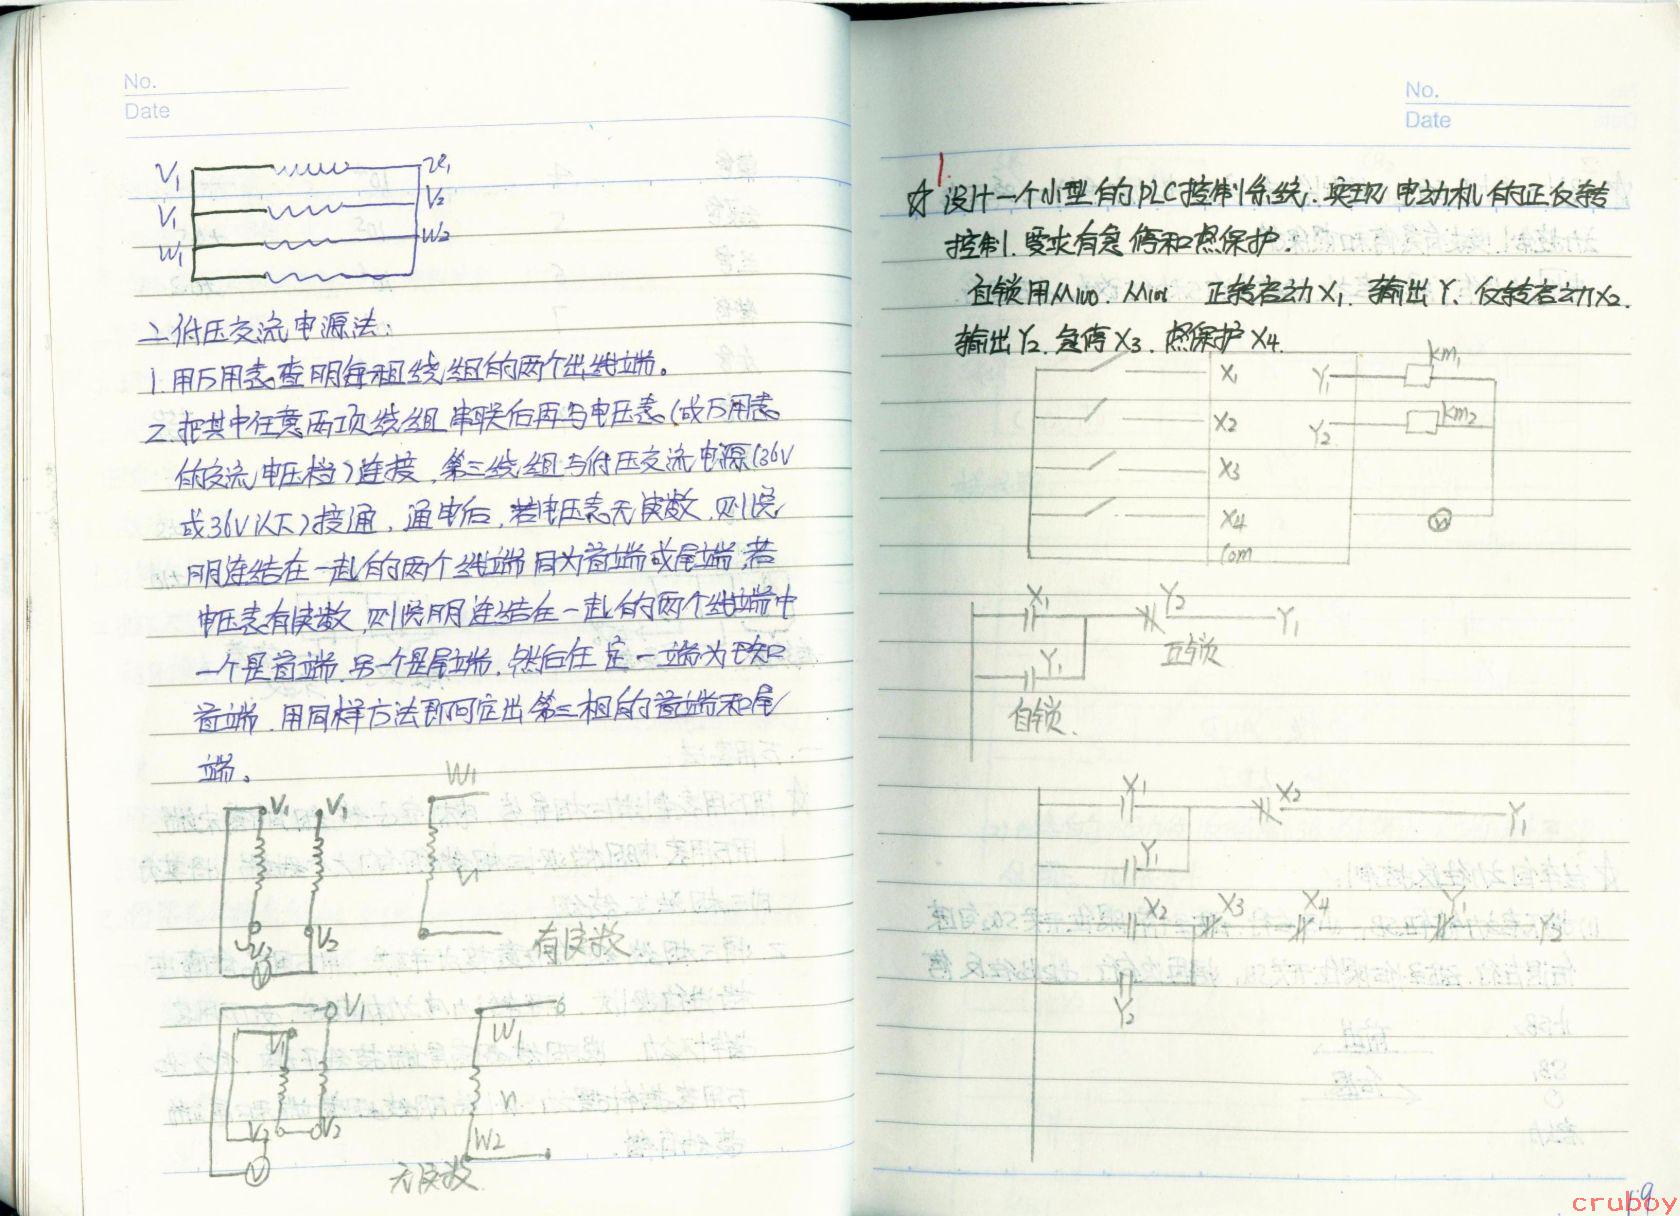 No.
Date
V₁
V₁
W₁
V₂
W₂
二.低压交流电源法:
1.用万用表查明每组绕组的两个出线端。
2.把其中任意两项绕组串联后再与电压表(或万用表
的交流电压档)连接,第三绕组与低压交流电源(36V
或36V以下)接通,通电后,若电压表无读数,则说
明连结在一起的两个线端同为首端或尾端,若
电压表有读数,则说明连结在一起的两个线端中
一个是首端,另一个是尾端,然后任定一端为已知
首端,用同样方法即可定出第三相的首端和尾
端。
V₁ V₁ W₁
V₂
V
有读数
V₁
V₁ W₁
V₂ V₂ W2
V
无读数
No.
Date
1
☆ 设计一个小型的PLC控制系统.实现电动机的正反转
控制.要求有急停和热保护.
自锁用M100. M101 正转启动X₁. 输出Y. 反转启动X2.
输出Y₂. 急停X3. 热保护X4.
X₁ Y₁ km₁
X2 Y₂ km2
X3
X4
Com
X₁ Y₂
Y₁
互锁
Y₁
自锁.
X₁ X₂
Y₁
Y₁
X2 X3 X4 Y₁ Y₂
Y₂
19
cruboy